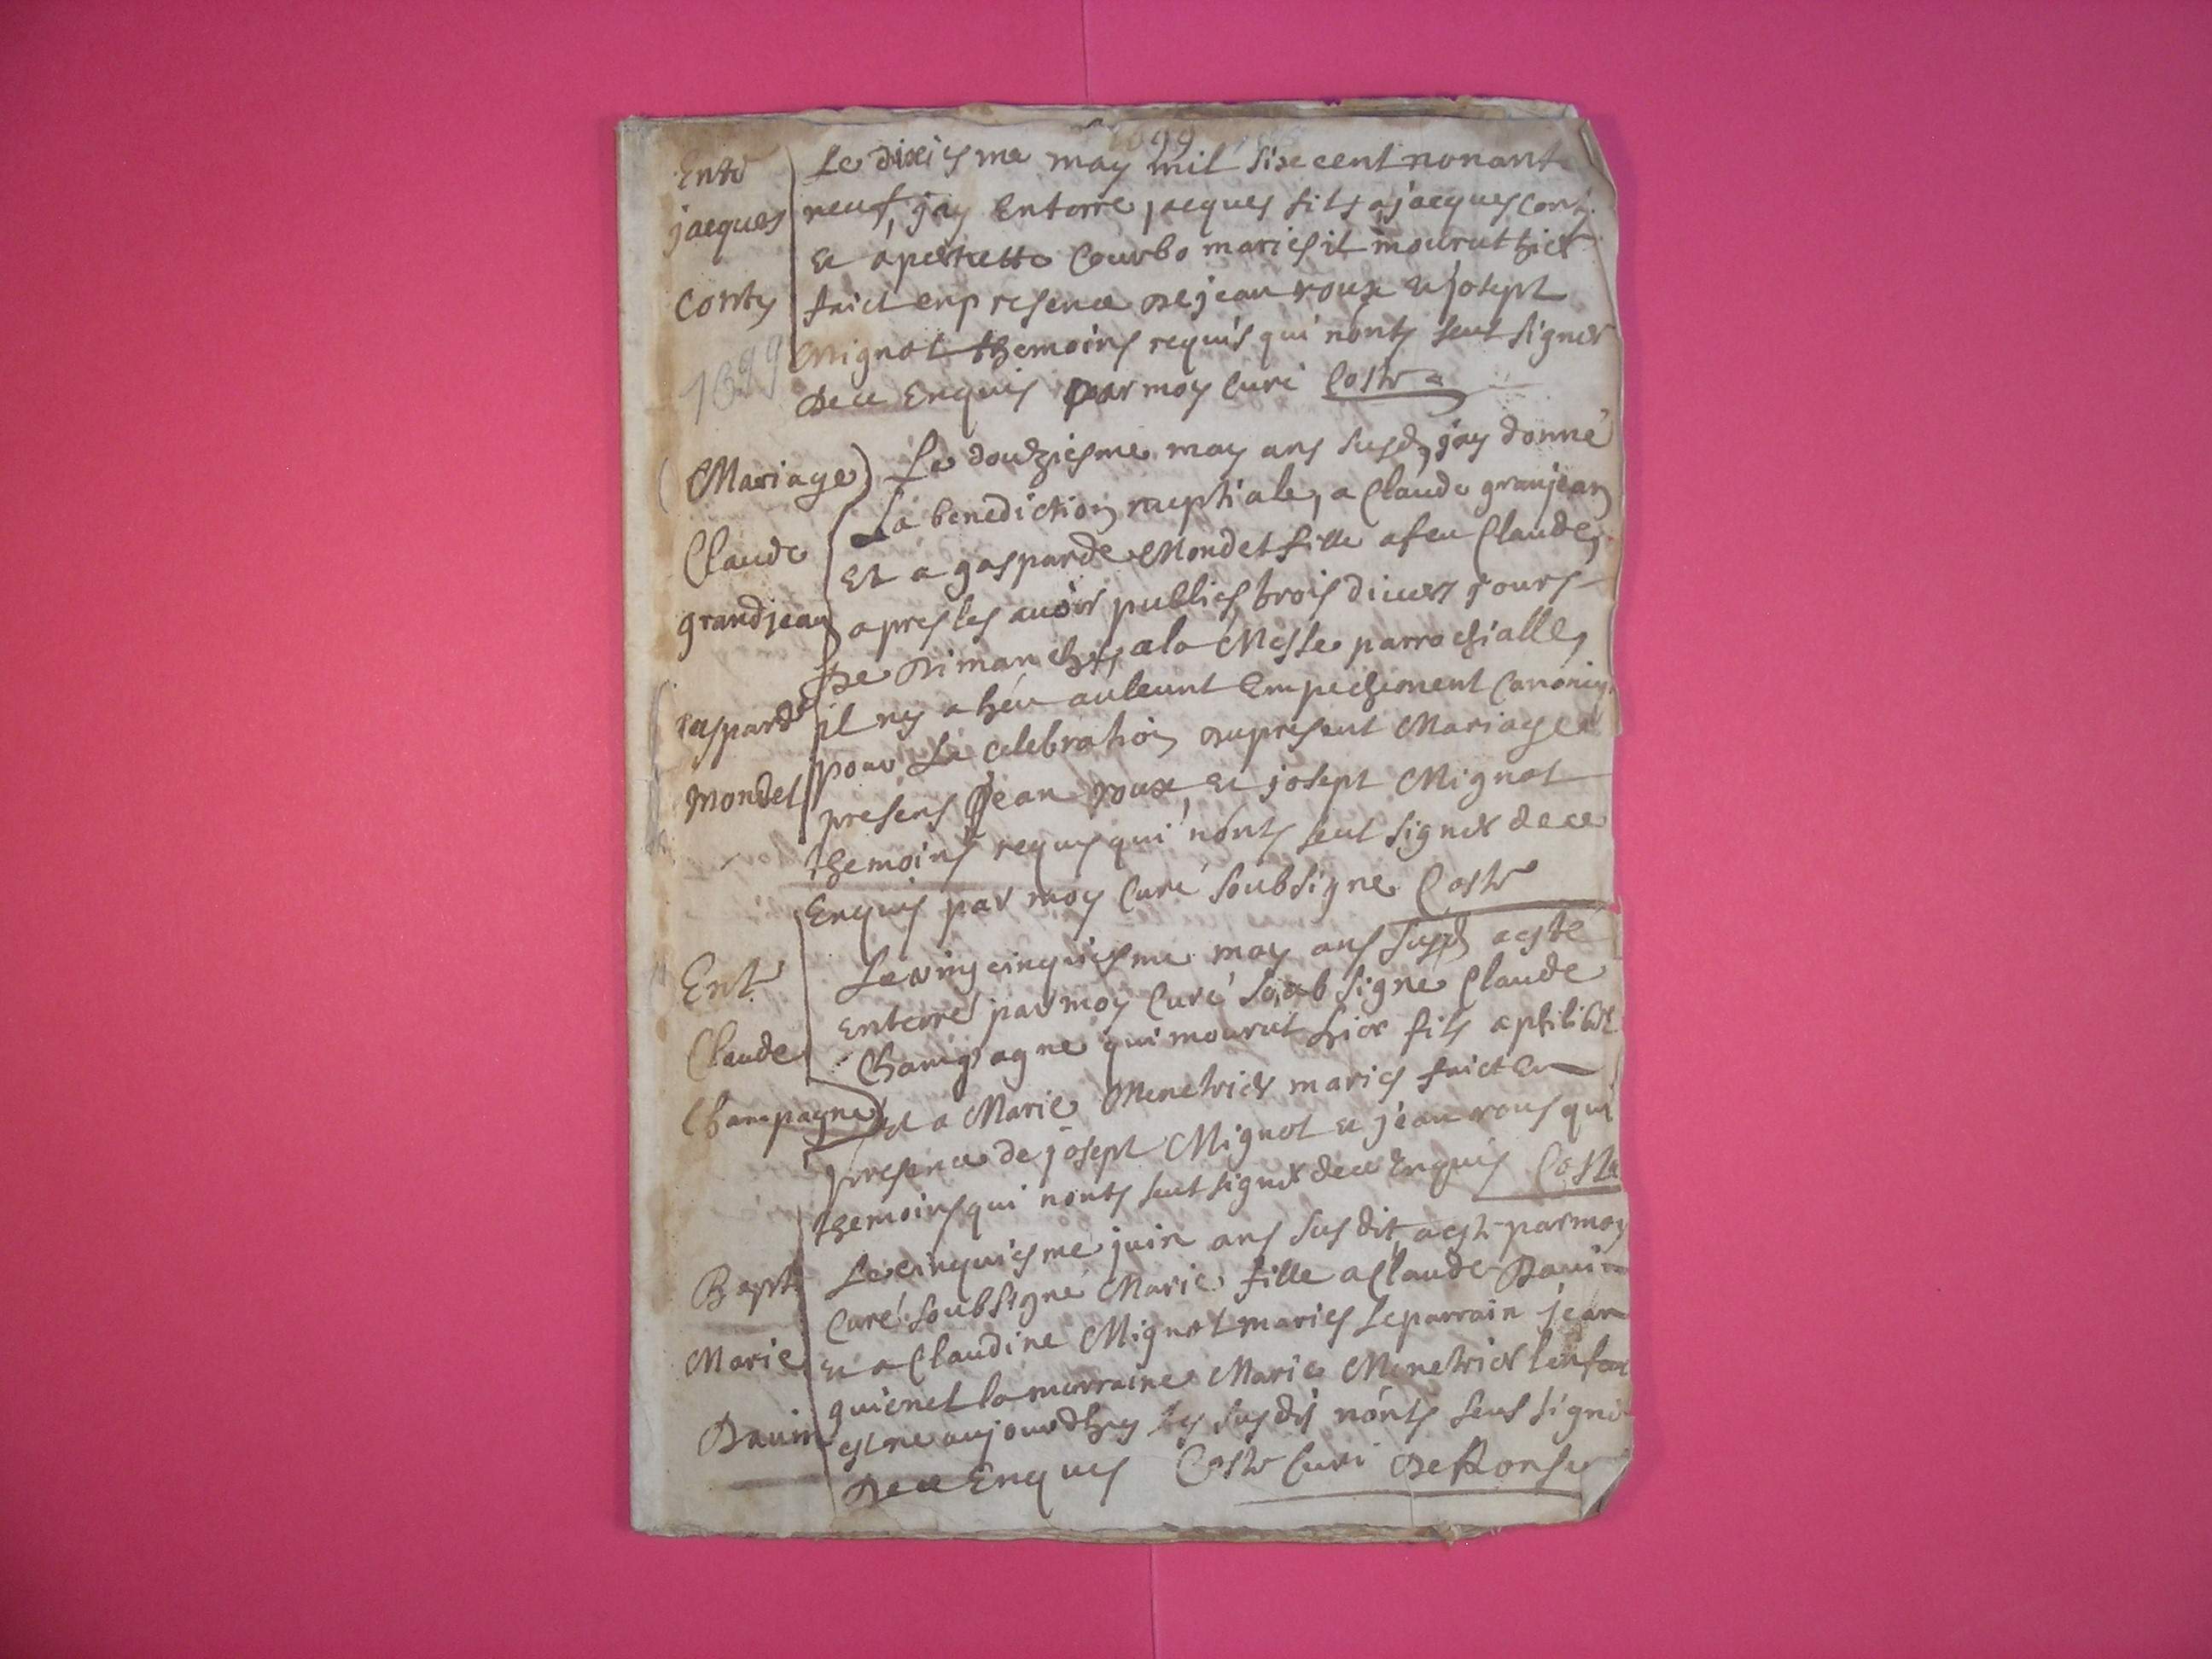 1699
Entr
jacques
Conty
1699
Le dixiesme may mil sixe cent nonant
neuf, jay Enterré jacques fils a jacques Cont
et a perrette Courbo mariés il mourut hier
faict en presence de jean roux et josept
Mignot themoins requis qui n'onts seut signer
de ce Enquis par moy Curé Coste
Mariage
Claude
grandjean
gasparde
Mondet
Le douziesme may ans susd, jay donné
La benediction nuptiale, a Claude granjean
Et a gasparde Mondet fille a feu Claude,
apres les auoir publies trois diuers jours
de dimanches a la Messe parrochialle,
il ny a heu auleunt Empechement Canoniq
pour La celebration du present Mariage
presens Jean roux, et josept Mignot
themoins requis qui n'onts seut signer de ce
Enquis par moy Curé soubsigne Coste
Ent
Claude
Champagne
Le vingcinquiesme may ans susd a esté
enterré par moy Curé soubsigné Claude
Champagne qui mourut hier fils a philiber
et a Marie Menetrier mariés faict en
presence de josept Mignot et jean rous qui
themoins qui n'onts seut signer de ce Enquis Coste
Bapt
Marie
Dauin
Le cinquiesme juin ans susdit a est par moy
Curé soubsigné Marie fille a Claude Dauin
et a Claudine Mignot mariés Le parrain jean
guienet la marraine Marie Menetrier lenfan
est ne aujourdhuy les susdis n'onts seus signe
de ce Enquis Coste Curé de